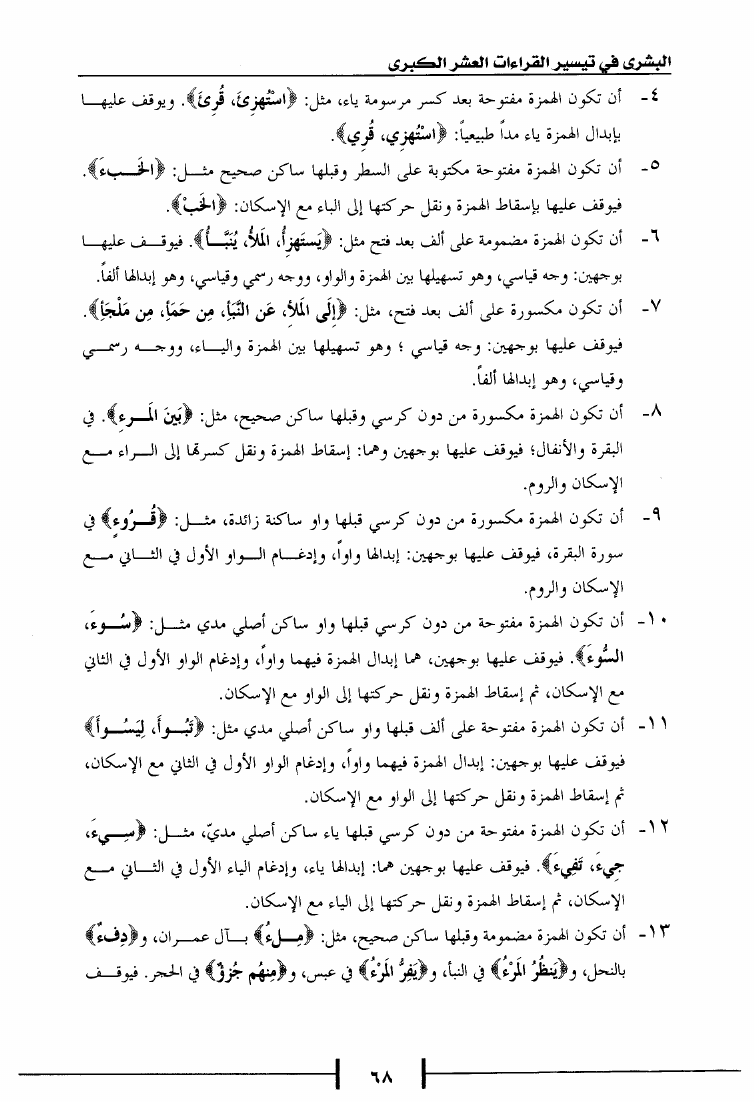 البشرى في تيسير القراءات العشر الكبرى
٤- أن تكون الهمزة مفتوحة بعد كسر مرسومة ياء، مثل: ﴿اسْتُهزِئَ، قُرِئَ﴾. ويوقف عليهــا
بإبدال الهمزة ياء مداً طبيعياً: ﴿اسْتُهزِي، قُرِي﴾.
٥- أن تكون الهمزة مفتوحة مكتوبة على السطر وقبلها ساكن صحيح مثــل: ﴿الخَــبءَ﴾.
فيوقف عليها بإسقاط الهمزة ونقل حركتها إلى الباء مع الإسكان: ﴿الخَبْ﴾.
٦- أن تكون الهمزة مضمومة على ألف بعد فتح مثل: ﴿يَستَهزِأُ، الملأُ، يُنَبَّــأُ﴾. فيوقــف عليهــا
بوجهين: وجه قياسي، وهو تسهيلها بين الهمزة والواو، ووجه رسمي وقياسي، وهو إبدالها ألفاً.
٧- أن تكون مكسورة على ألف بعد فتح، مثل: ﴿إِلَى الملأِ، عَن النَّبَأِ، مِن حَمَأٍ، مِن مَلْجَأٍ﴾.
فيوقف عليها بوجهين: وجه قياسي ؛ وهو تسهيلها بين الهمزة واليــاء، ووجــه رسمــي
وقياسي، وهو إبدالها ألفاً.
٨- أن تكون الهمزة مكسورة من دون كرسي وقبلها ساكن صحيح، مثل: ﴿بَينَ المَــرءِ﴾. في
البقرة والأنفال؛ فيوقف عليها بوجهين وهما: إسقاط الهمزة ونقل كسرتها إلى الــراء مــع
الإسكان والروم.
٩- أن تكون الهمزة مكسورة من دون كرسي قبلها واو ساكنة زائدة، مثــل: ﴿قُــرُوءٍ﴾ في
سورة البقرة، فيوقف عليها بوجهين: إبدالها واواً، وإدغــام الــواو الأول في الثــاني مــع
الإسكان والروم.
١٠- أن تكون الهمزة مفتوحة من دون كرسي قبلها واو ساكن أصلي مدي مثــل: ﴿سُــوءَ،
السُّوءَ﴾. فيوقف عليها بوجهين، هما إبدال الهمزة فيهما واواً، وإدغام الواو الأول في الثاني
مع الإسكان، ثم إسقاط الهمزة ونقل حركتها إلى الواو مع الإسكان.
١١- أن تكون الهمزة مفتوحة على ألف قبلها واو ساكن أصلي مدي مثل: ﴿تَبُــوأَ، لِيَسُــوأَ﴾
فيوقف عليها بوجهين: إبدال الهمزة فيهما واواً، وإدغام الواو الأول في الثاني مع الإسكان،
ثم إسقاط الهمزة ونقل حركتها إلى الواو مع الإسكان.
١٢- أن تكون الهمزة مفتوحة من دون كرسي قبلها ياء ساكن أصلي مديّ، مثــل: ﴿سِــيءَ،
جِيءَ، تَفِيءَ﴾. فيوقف عليها بوجهين هما: إبدالها ياء، وإدغام الياء الأول في الثــاني مــع
الإسكان، ثم إسقاط الهمزة ونقل حركتها إلى الياء مع الإسكان.
١٣- أن تكون الهمزة مضمومة وقبلها ساكن صحيح، مثل: ﴿مِــلءُ﴾ بــآل عمــران، و﴿دِفءٌ﴾
بالنحل، و﴿يَنظُرُ المَرْءُ﴾ في النبأ، و﴿يَفِرُّ المَرْءُ﴾ في عبس، و﴿مِنهُم جُزءٌ﴾ في الحجر. فيوقــف
٦٨